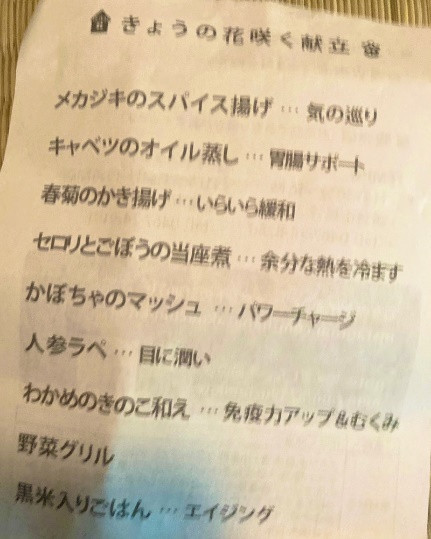 きょうの花咲く献立
メカジキのスパイス揚げ … 気の巡り
キャベツのオイル蒸し … 胃腸サポート
春菊のかき揚げ … いらいら緩和
セロリとごぼうの当座煮 … 余分な熱を冷ます
かぼちゃのマッシュ … パワーチャージ
人参ラペ … 目に潤い
わかめのきのこ和え … 免疫力アップ&むくみ
野菜グリル
黒米入りごはん … エイジング